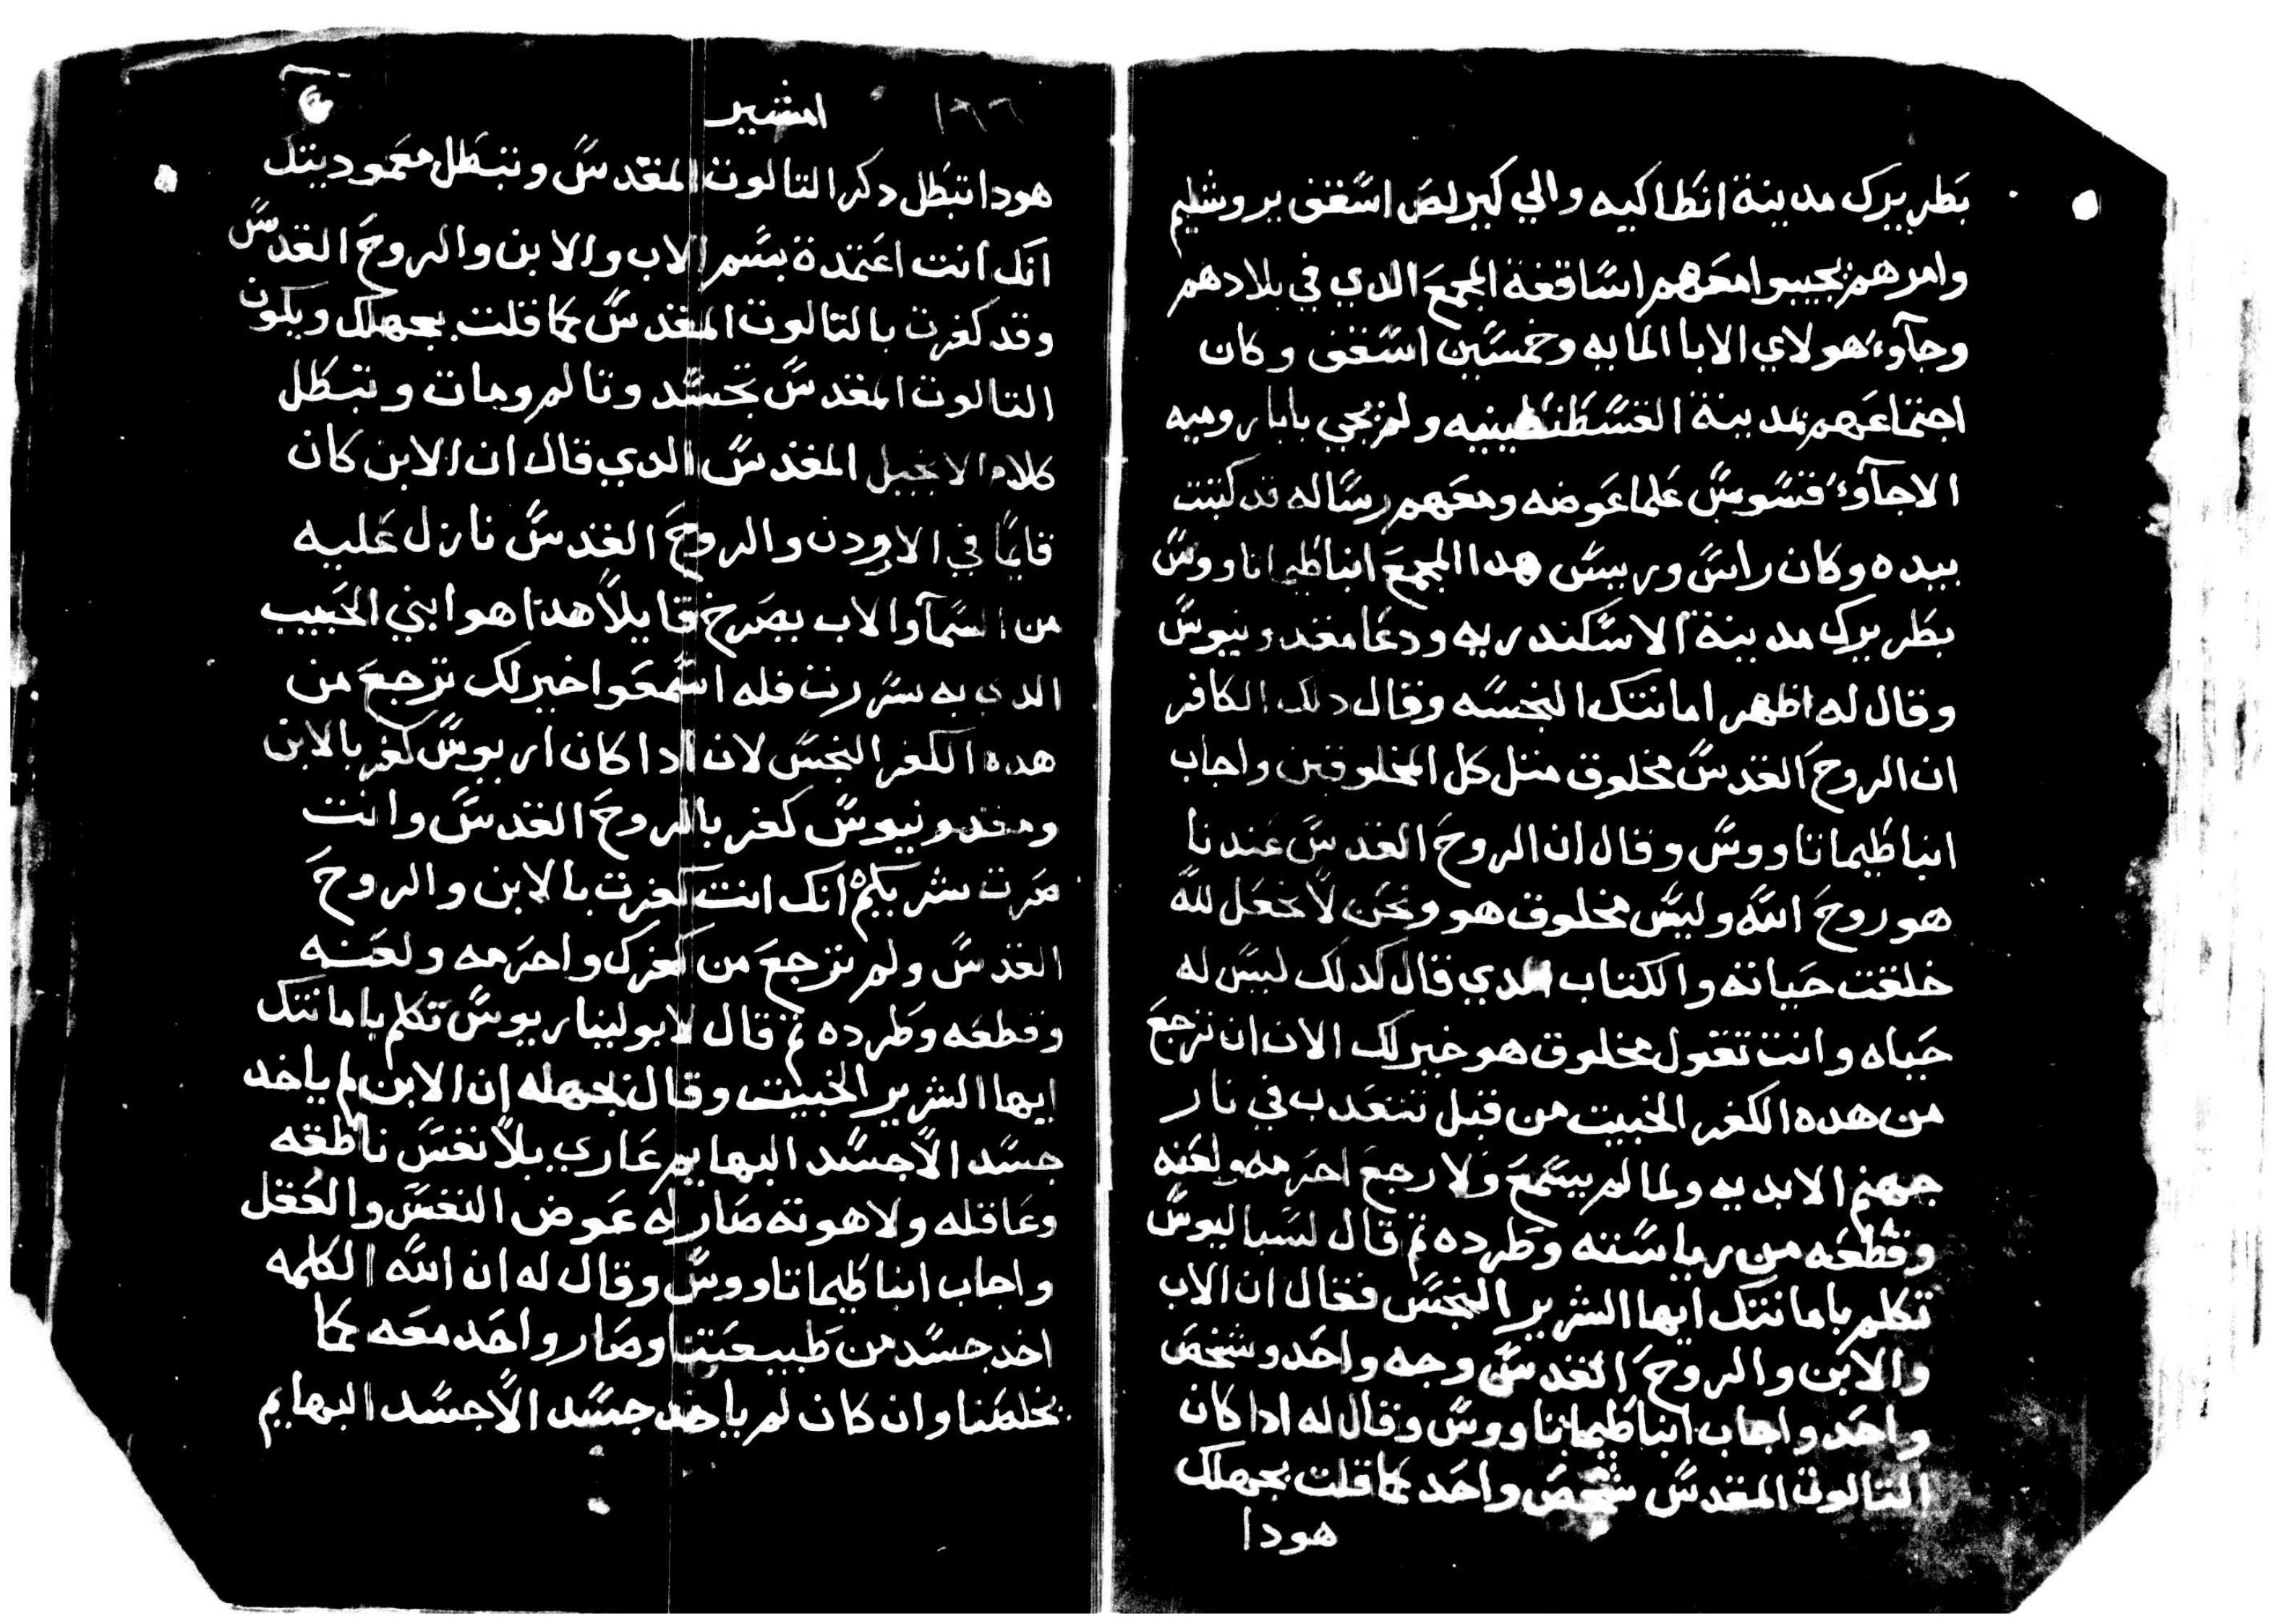 بطريرك مدينة انطاكيه والي كيرلص اسقف يروشليم
وامرهم يجيبوا معهم اساقفة المجمع الدي في بلادهم
وجآوء هولاي الابا المايه وخمسين اسقف وكان
اجتماعهم بمدينة القسطنطينيه ولم يجي بابا روميه
الا جآوء قسوس علما عوضه ومعهم رساله قد كتبت
بيده وكان راس وريس هدا المجمع انبا طيماتاووس
بطريرك مدينة الاسكندريه ودعا مقدونيوس
وقال له اظهر امانتك النجسه وقال دلك الكافر
ان الروح القدس مخلوق متل كل المخلوقين واجاب
انبا طيماتاووس وقال ان الروح القدس عندنا
هو روح الله وليس مخلوق هو ونحن لا نجعل لله
خلقت حياته والكتاب الدي قال كدلك ليس له
حياه وانت تقول مخلوق هو خير لك الان ان ترجع
من هده الكفر الخبيت من قبل تتعدب في نار
جهنم الابديه ولما لم يسمع ولا رجع احرمه ولعنه
وقطعه من رياسته وطرده تم قال لسباليوس
تكلم بامانتك ايها الشرير النجس فقال ان الاب
والابن والروح القدس وجه واحد وشخص
واحد واجاب انبا طيماتاووس وقال له ادا كان
التالوت المقدس شخص واحد كما قلت بجهلك
هودا
١٦٦ امشير
هودا تبطل دكر التالوت المقدس وتبطل معموديتك
انك انت اعتمدة بسم الاب والابن والروح القدس
وقد كفرت بالتالوت المقدس كما قلت بجهلك ويكون
التالوت المقدس تجسد وتالم ومات وتبطل
كلام الانجيل المقدس الدي قال ان الابن كان
قايمًا في الاردن والروح القدس نازل عليه
من السمآ والاب يصرخ قايلاً هدا هو ابني الحبيب
الدي به سررت فله اسمعوا خير لك ترجع من
هده الكفر النجس لان ادا كان اريوس كفر بالابن
ومقدونيوس كفر بالروح القدس وانت
صرت شريكم انك انت كفرت بالابن والروح
القدس ولم ترجع من كفرك واحرمه ولعنه
وقطعه وطرده تم قال لابوليناريوس تكلم بامانتك
ايها الشرير الخبيت وقال بجهله ان الابن لم ياخد
جسد الاجسد البهايم عاري بلا نفس ناطقه
وعاقله ولاهوته صار له عوض النفس والعقل
واجاب انبا طيماتاووس وقال له ان الله الكلمه
اخد جسد من طبيعتنا وصار واحد معه كما
يخلصنا وان كان لم ياخد جسد الاجسد البهايم